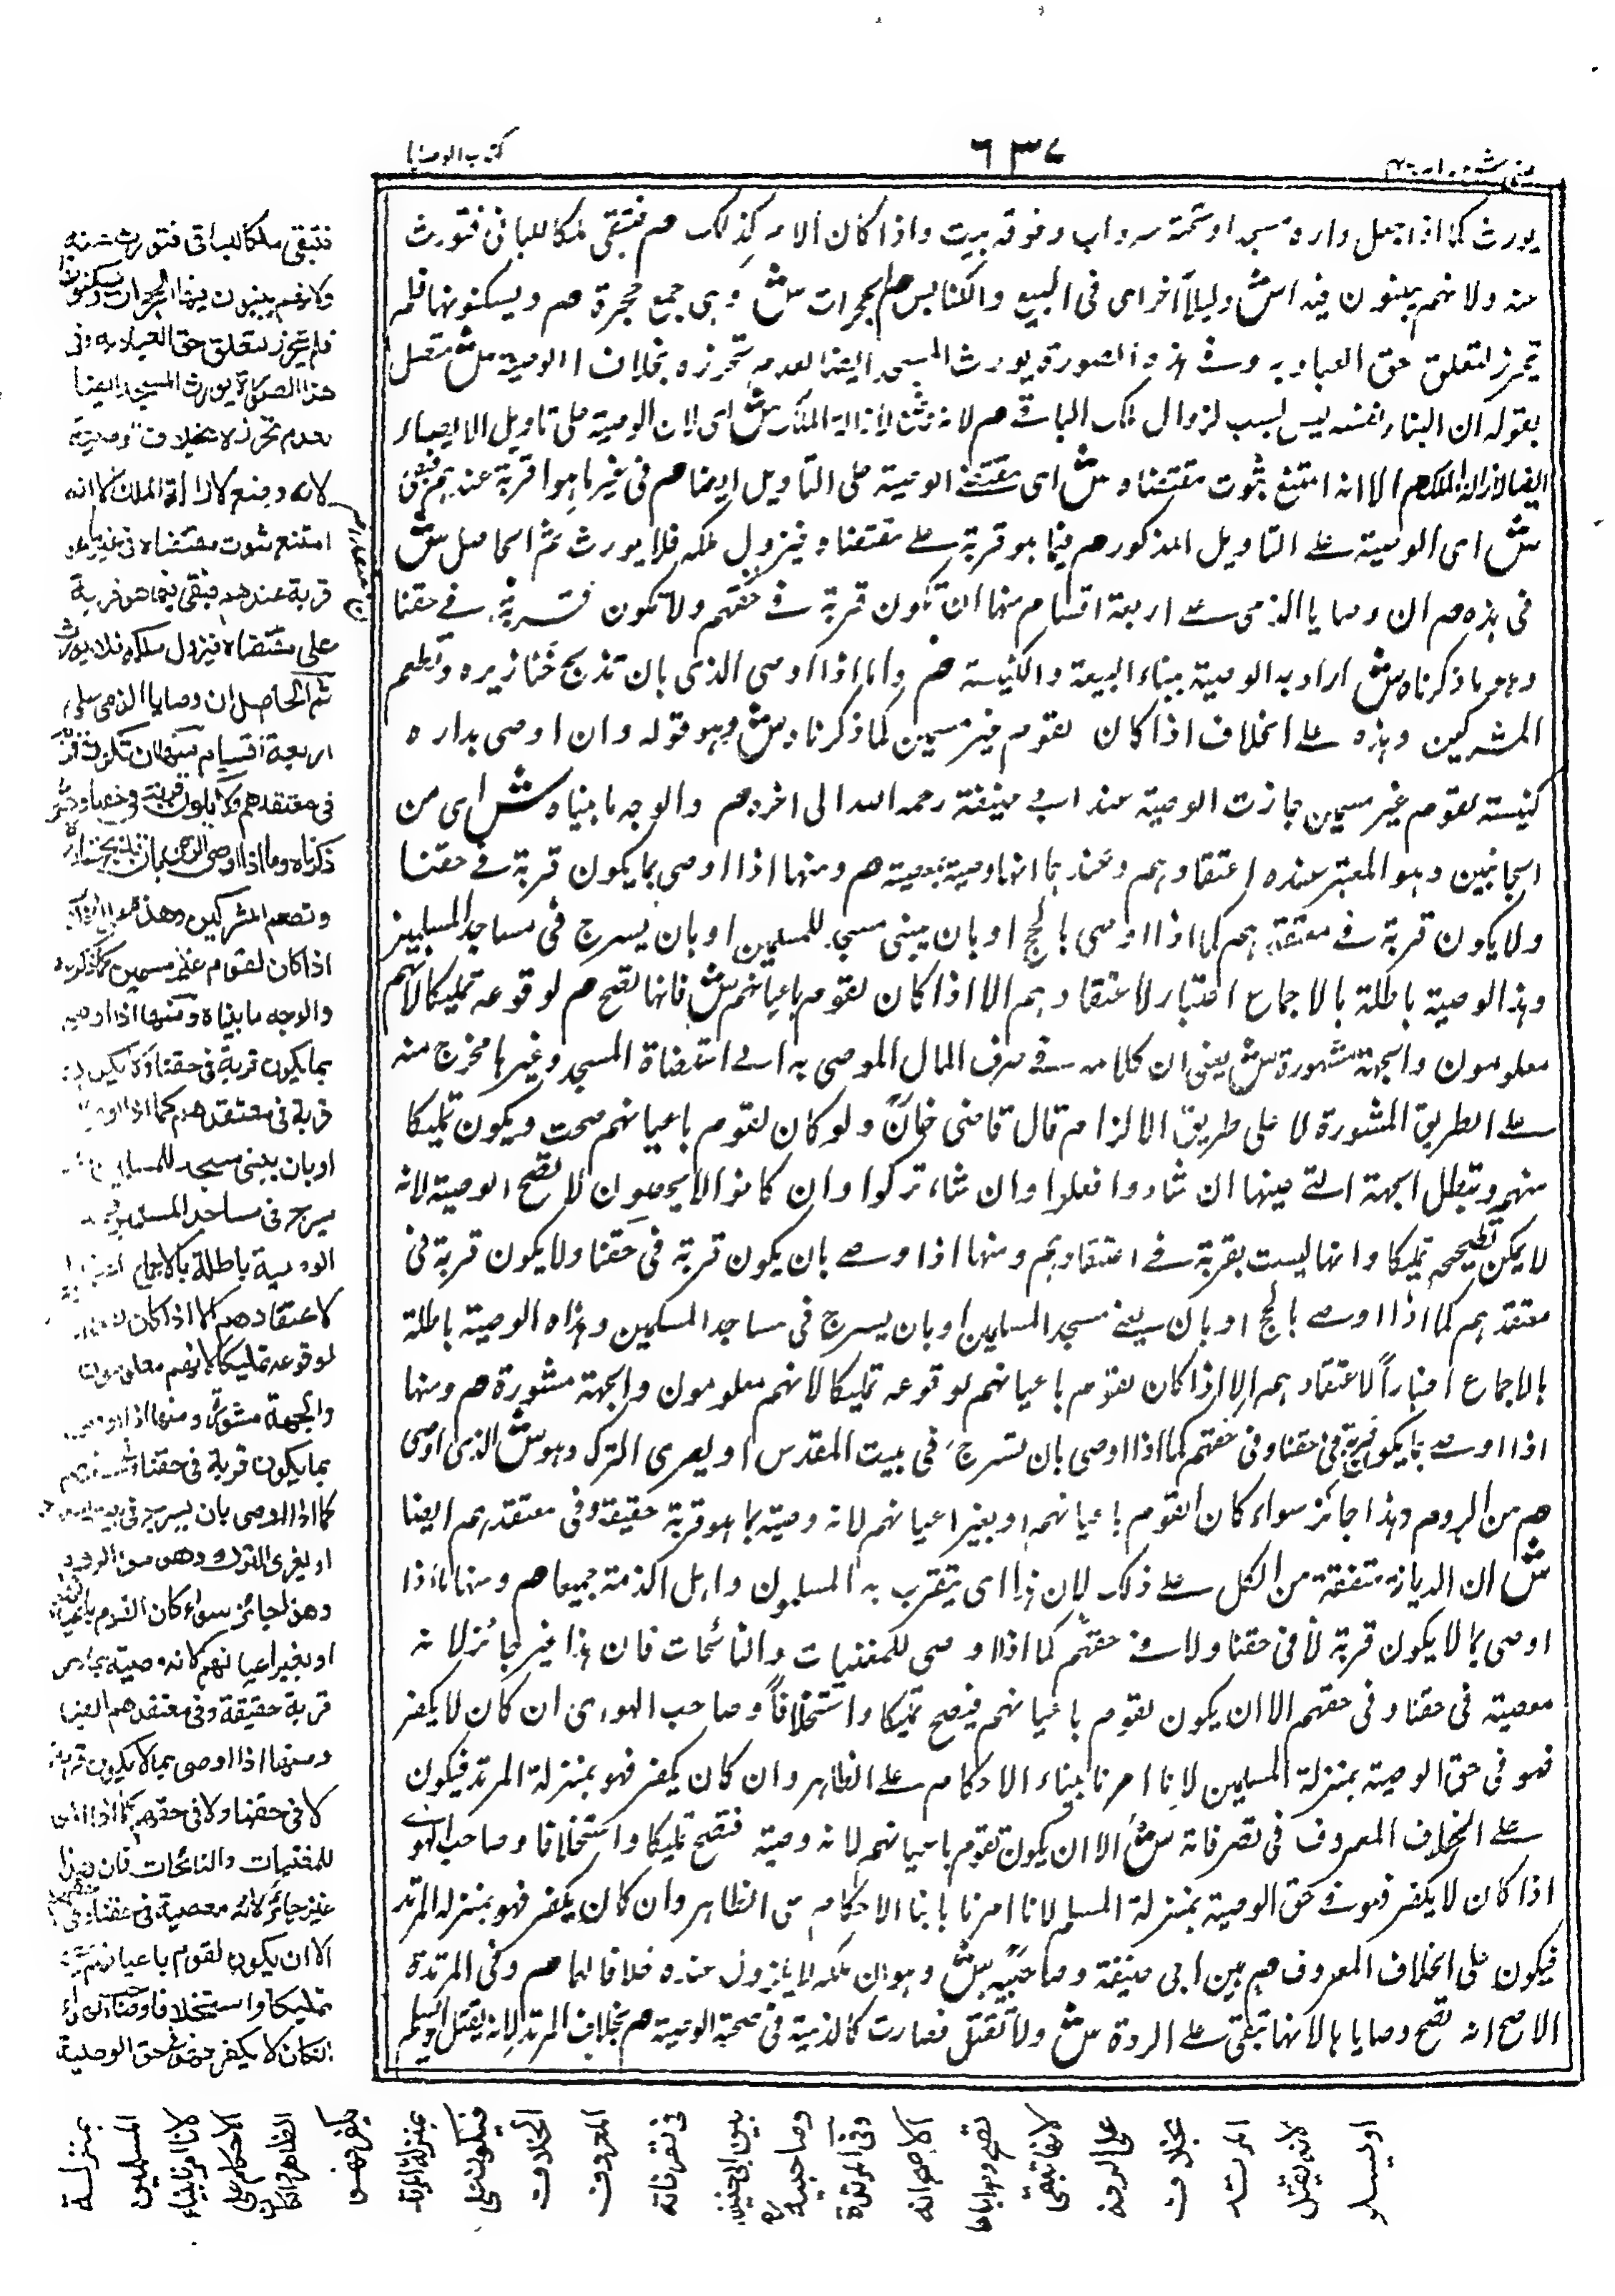 كتاب الوصايا
٦٣٧
يورث كما اذا جعل داره مسجدا وتحته سرداب وفوقه بيت واذا كان الامر كذلك هم فتبقى ملكا للبانى فتورث
عنه ولانهم يبنون فيه اش دليل آخر اى فى البيع والكنايس هم الحجرات ش وهى جمع حجرة هم ويسكنونها فلم
يتحرز لتعلق حق العباد به وفى هذه الصورة يورث المسجد ايضا لعدم تحرزه بخلاف الوصية ش متصل
بقوله ان البناء نفسه ليس بسبب لزوال ملك البانى هم لانه وضع لازالة الملك ش اى لان الوصية على تاويل الايصاء
ايضا لازالة الملك هم الا انه امتنع ثبوت مقتضاه ش اى مقتضى الوصية على التاويل ايضا هم فى غير ما هو قربة عندهم فبقى
ش اى الوصية على التاويل المذكور هم فيما هو قربة على مقتضاه فيزول ملكه فلا يورث ثم الحاصل ش
فى هذه هم ان وصايا الذمى على اربعة اقسام منها ان تكون قربة فى حقهم ولا تكون قربة فى حقنا
وهو ما ذكرناه ش اراد به الوصية ببناء البيعة والكنيسة هم واما اذا اوصى الذمى بان تذبح خنازيره وتطعم
المشركين وهذه على الخلاف اذا كان لقوم غير مسمين كما ذكرناه ش وهو قوله وان اوصى بداره
كنيسة لقوم غير مسمين جازت الوصية عند ابى حنيفة رحمه الله الى اخره هم والوجه ما بيناه ش اى من
الجانبين وهو المعتبر عنده اعتقادهم وعندهما انها وصية بمعصية هم ومنها اذا اوصى بما يكون قربة فى حقنا
ولا يكون قربة فى معتقدهم كما اذا اوصى بالحج او بان يبنى مسجد للمسلمين او بان يسرج فى مساجد المسلمين
وهذ الوصية باطلة بالاجماع اعتبار لاعتقادهم الا اذا كان لقوم باعيانهم ش فانها تصح هم لوقوعه تمليكا لانهم
معلومون والجهة مشهورة ش يعنى ان كلامه فى صرف المال الموصى به الى استضاءة المسجد وغيرها مخرج منه
على الطريق المشورة لا على طريق الالزام قال قاضى خان ولو كان لقوم باعيانهم صحت ويكون تمليكا
منهم وتبطل الجهة التى عينها ان شاءوا فعلوا وان شاء تركوا وان كانوا لا يحصون لا تصح الوصية لانه
لا يمكن تصحيحه تمليكا وانها ليست بقربة فى اعتقادهم ومنها اذا وصى بان يكون قربة فى حقنا ولا يكون قربة فى
معتقدهم كما اذا اوصى بالحج او بان يبنى مسجد المسلمين او بان يسرج فى مساجد المسلمين وهذاه الوصية باطلة
بالاجماع اعتباراً لاعتقادهم الا اذا كان لقوم باعيانهم لوقوعه تمليكا لانهم معلومون والجهة مشورة هم ومنها
اذا اوصى بما يكون قربة فى حقنا وفى حقهم كما اذا اوصى بان تسرج فى بيت المقدس او يعزى الترك وهو ش الذى اوصى
هم من الروم وهذا جائز سواء كان القوم باعيانهم او بغير اعيانهم لانه وصية بما هو قربة حقيقة وفى معتقدهم ايضا
ش ان الديانة متفقة من الكل على ذلك لان هذا اى يتقرب به المسلمون واهل الذمة جميعا هم ومنها ما اذا
اوصى بما لا يكون قربة لا فى حقنا ولا فى حقهم كما اذا اوصى للمغنيات والنائحات فان هذا غير جائز لانه
معصية فى حقنا وفى حقهم الا ان يكون لقوم باعيانهم فيصح تمليكا واستخلافاً وصاحب الهوى ان كان لا يكفر
فهو فى حق الوصية بمنزلة المسلمين لانا امرنا ببناء الاحكام على الظاهر وان كان يكفر فهو بمنزلة المرتد فيكون
على الخلاف المعروف فى تصرفاته ش الا ان يكون لقوم باعيانهم لانه وصية فتصح تمليكا واستخلافا وصاحب الهوى
اذا كان لا يكفر فهو فى حق الوصية بمنزلة المسلم لانا امرنا بابنا الاحكام على الظاهر وان كان يكفر فهو بمنزله المرتد
فيكون على الخلاف المعروف هم بين ابى حنيفة وصاحبيه ش وهو ان ملكه لا يزول عنده خلافا لهما هم وفى المرتدة
الاصح انه تصح وصاياها لانها تبقى على الردة ش ولا تقتل فصارت كالذمية فى صحة الوصية هم بخلاف المرتد لانه يقتل او يسلم
فتبقى ملكا للبانى فتورث عنه
ولانهم يبنون فيها الحجرات ويسكنونها
فلم يتحرز لتعلق حق العباد به وفى
هذا الصورة يورث المسجد ايضا
لعدم تحرزه بخلاف الوصية
لانه وضع لازالة الملك الا انه
امتنع ثبوت مقتضاه فى غير ما هو
قربة عندهم فبقى فيما هو قربة
على مقتضاه فيزول ملكه فلا يورث
ثم الحاصل ان وصايا الذمى على
اربعة اقسام منها ان تكون قربة
فى معتقدهم ولا يكون قربة فى حقنا وهو ما
ذكرناه وما اذا اوصى الذمى بان تذبح خنازيره
وتطعم المشركين وهذه على الخلاف
اذا كان لقوم غير مسمين كما ذكرناه
والوجه ما بيناه ومنها اذا اوصى
بما يكون قربة فى حقنا ولا يكون
قربة فى معتقدهم كما اذا اوصى
او بان يبنى مسجد للمسلمين
يسرج فى مساجد المسلمين
الوصية باطلة بالاجماع
لاعتقادهم الا اذا كان
لوقوعه تمليكا لانهم معلومون
والجهة مشورة ومنها اذا اوصى
بما يكون قربة فى حقنا
كما اذا اوصى بان يسرج فى بيت
او يغزى الترك وهو من الروم
وهذا جائز سواء كان القوم باعيانهم
او بغير اعيانهم لانه وصية بما هو
قربة حقيقة وفى معتقدهم ايضا
ومنها اذا اوصى بما لا يكون قربة
لا فى حقنا ولا فى حقهم كما اذا اوصى
للمغنيات والنائحات فان هذا
غير جائز لانه معصية فى حقنا وفى حقهم
الا ان يكون لقوم باعيانهم
تمليكا واستخلافا وصاحب الهواء
ان كان لا يكفر فهو فى حق الوصية
بمنزلة
المسلمين
لانا امرنا ببناء
الاحكام على
الظاهر وان كان
يكفر فهو
بمنزلة المرتد
فيكون على
الخلاف
المعروف
فى تصرفاته
بين ابى حنيفة
وصاحبيه
وفى المرتدة
الاصح انه
تصح وصاياها
لانها تبقى
على الردة
بخلاف
المرتد
لانه يقتل
او يسلم